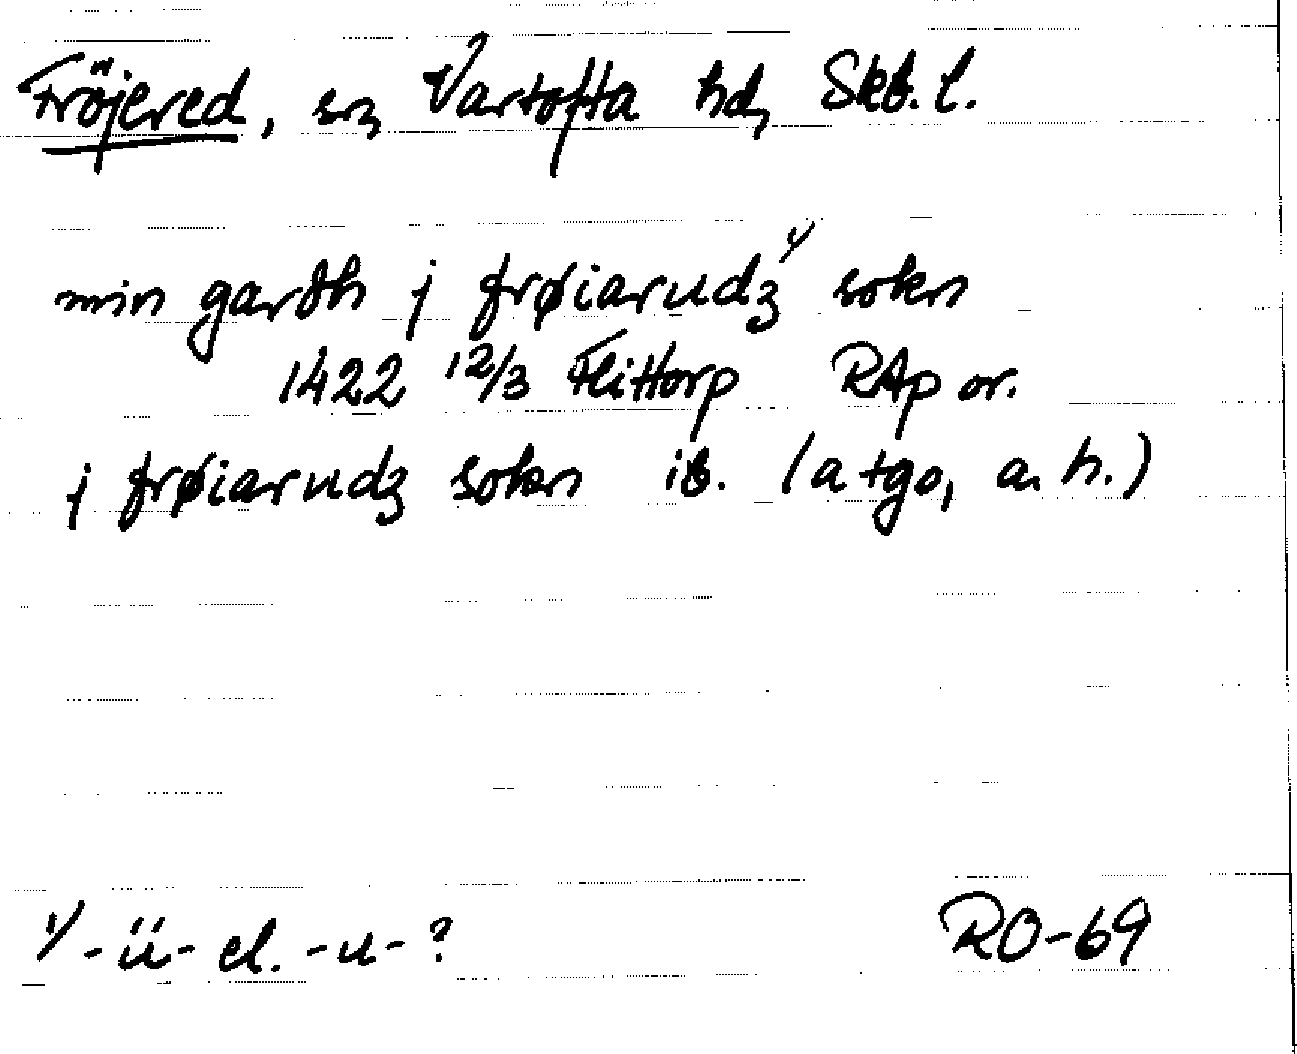 Fröjered, sn, Vartofta hd, Skb. l.
min gardh j frøiarudz 1/ sokn
1422 12/3 Flittorp RAp or.
j frøiarudz sokn ib. (atgo, a. h.)
1/ -ü- el. -u- ?
RO-69